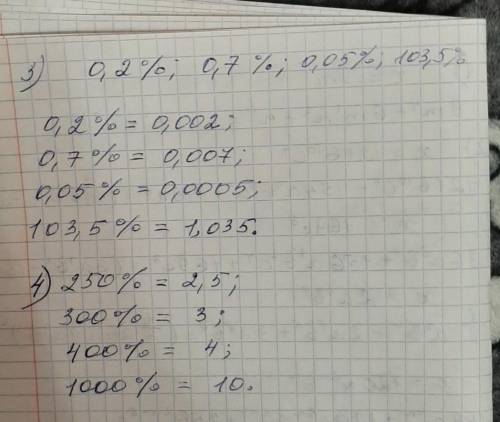 3) 0,2%; 0,7%; 0,05%; 103,5%
0,2% = 0,002;
0,7% = 0,007;
0,05% = 0,0005;
103,5% = 1,035.
4) 250% = 2,5;
300% = 3;
400% = 4;
1000% = 10.